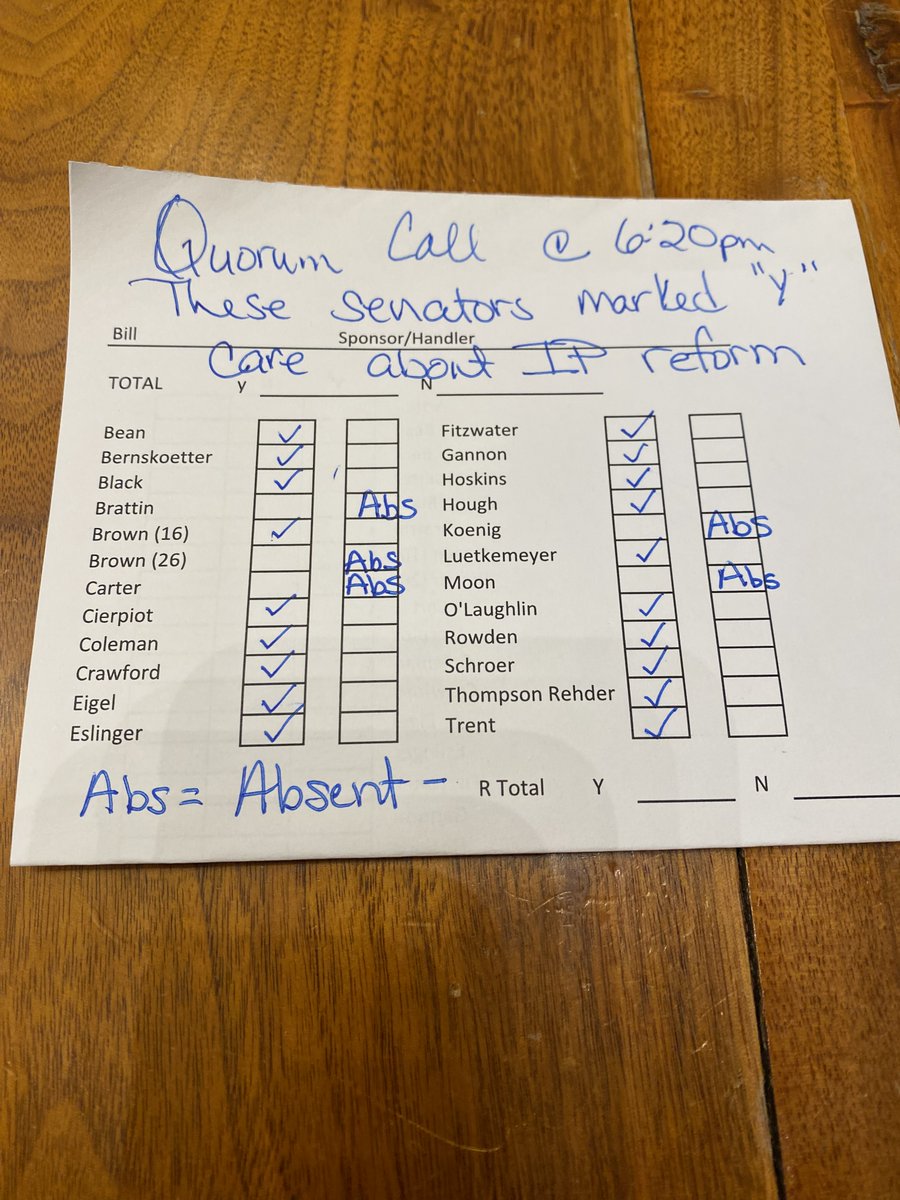 Quorum Call @ 6:20pm
These senators marked "y"
Bill Sponsor/Handler
Care about IP reform
TOTAL y N
Bean ✓
Bernskoetter ✓
Black ✓
Brattin Abs
Brown (16) ✓
Brown (26) Abs
Carter Abs
Cierpiot ✓
Coleman ✓
Crawford ✓
Eigel ✓
Eslinger ✓
Fitzwater ✓
Gannon ✓
Hoskins ✓
Hough ✓
Koenig Abs
Luetkemeyer ✓
Moon Abs
O'Laughlin ✓
Rowden ✓
Schroer ✓
Thompson Rehder ✓
Trent ✓
Abs = Absent -
R Total Y N